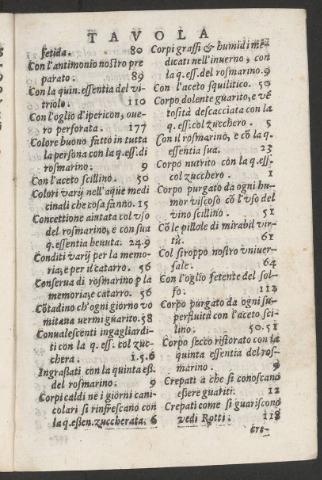 TAVOLA
fetida. 80
Con l'antimonio nostro pre
parato. 89
Con la quin. essentia del vi-
triolo. 110
Con l'oglio d'ipericon, oue-
ro perforata. 177
Colore buono fatto in tutta
la persona con la q. ess. di
rosmarino. 9
Con l'aceto scillino. 50
Colori varij nell'aque medi
cinali che cosa fanno. 15
Concettione aiutata col vso
del rosmarino, e con sua
q. essentia beuuta. 24.9
Conditi varij per la memo-
ria, e per il catarro. 56
Conserua di rosmarino p la
memoria, e catarro. 56
Cōtadino ch'ogni giorno vo
mitaua uermi guarito. 58
Conualescenti ingagliardi-
ti con la q. ess. col zuc-
chera. 1.5.6
Ingrassati con la quinta ess.
del rosmarino. 9
Corpi caldi ne i giorni cani-
colari si rinfrescano con
la q. essen. zuccherata. 6
Corpi grassi & humidi me-
dicati nell'inuerno, con
la q. ess. del rosmarino. 9
Con l'aceto squilitico. 50
Corpo dolente guarito, e vē
tosità descacciata con la
q. ess. col zucchero. 5
Con il rosmarino, e cō la q.
essentia sua. 23
Corpo nutrito con la q. ess.
col zucchero. 1
Corpo purgato da ogni hu-
mor viscoso cō l'vso del
vino scillino. 51
Cō le pillole di mirabil vir-
tù. 61
Col siroppo nostro vniuer-
sale. 64
Con l'oglio fetente del sol-
fo. 112
Corpo purgato da ogni su-
perfluità con l'aceto sci-
lino. 50.51
Corpo secco ristorato con la
quinta essentia del ros-
marino. 9
Crepati a che si conoscano
essere guariti. 12
Crepati come si guariscono
vedi Rotti. 118